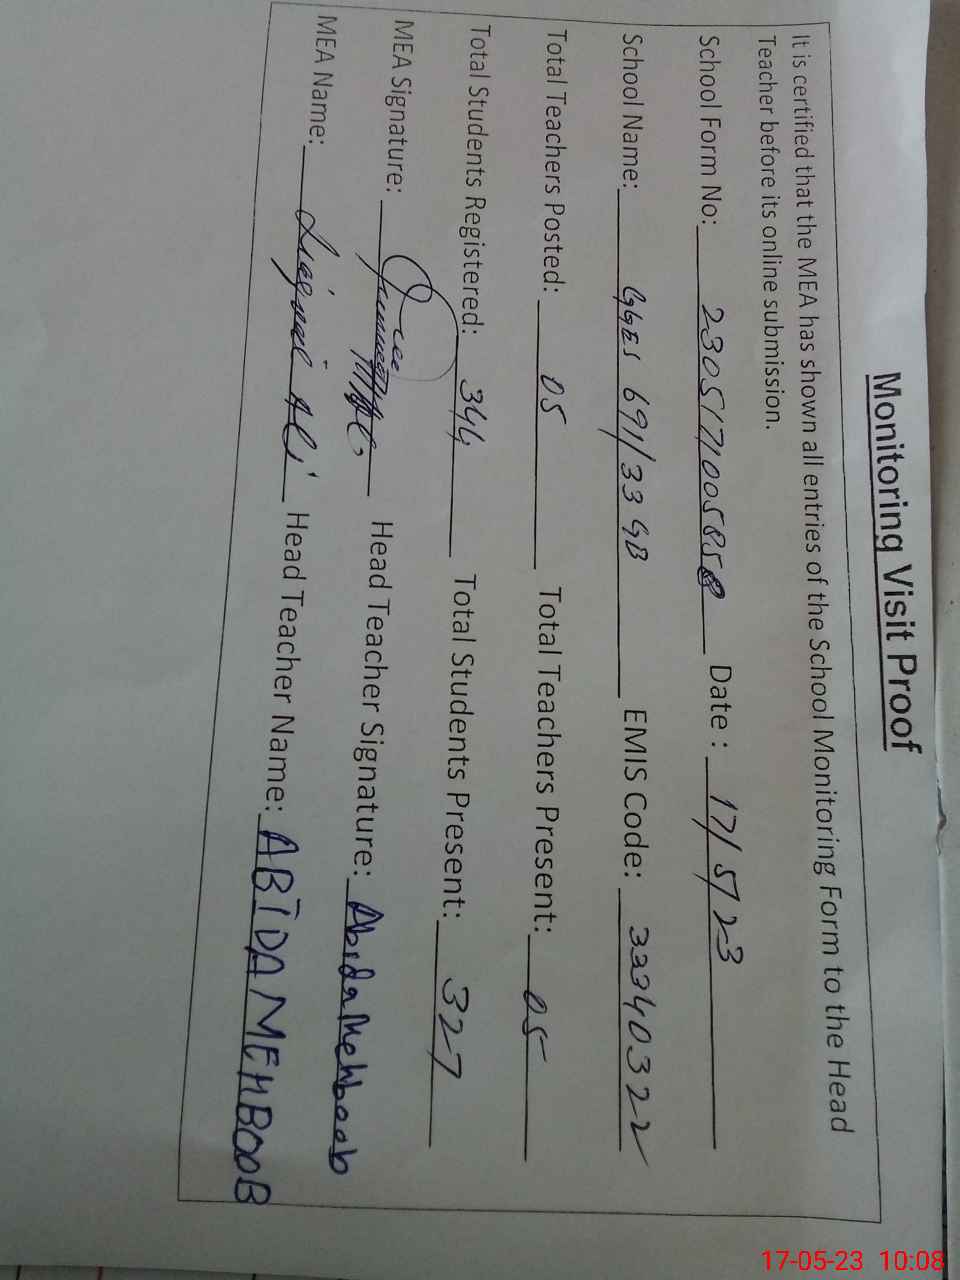 Monitoring Visit Proof
It is certified that the MEA has shown all entries of the School Monitoring Form to the Head
Teacher before its online submission.
School Form No: 2305171005858 Date: 17/5/23
School Name: GGES 691/33 GB EMIS Code: 33340322
Total Teachers Posted: 05 Total Teachers Present: 05
Total Students Registered: 344 Total Students Present: 327
MEA Signature: Head Teacher Signature: Abida Mehboob
MEA Name: Ali Head Teacher Name: ABIDA MEHBOOB
17-05-23 10:08